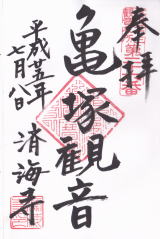 奉拝
亀塚観音
平成廿五年
七月八日
清海寺